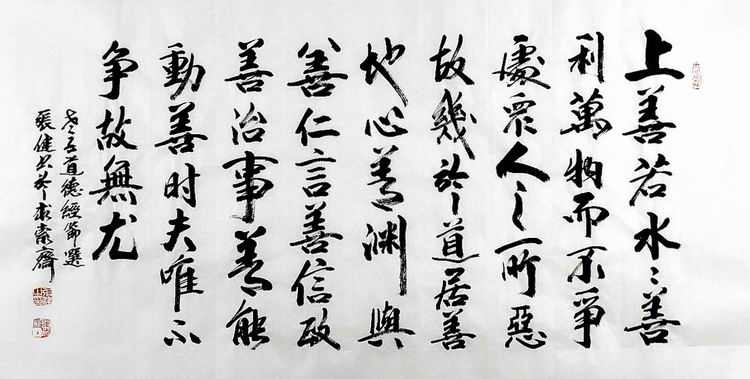 上善若水〻善
利萬物而不爭
處衆人之所惡
故幾於道居善
地心善淵與
善仁言善信政
善治事善能
動善時夫唯不
争故無尤
老子道德經節選
張健書於求索齋